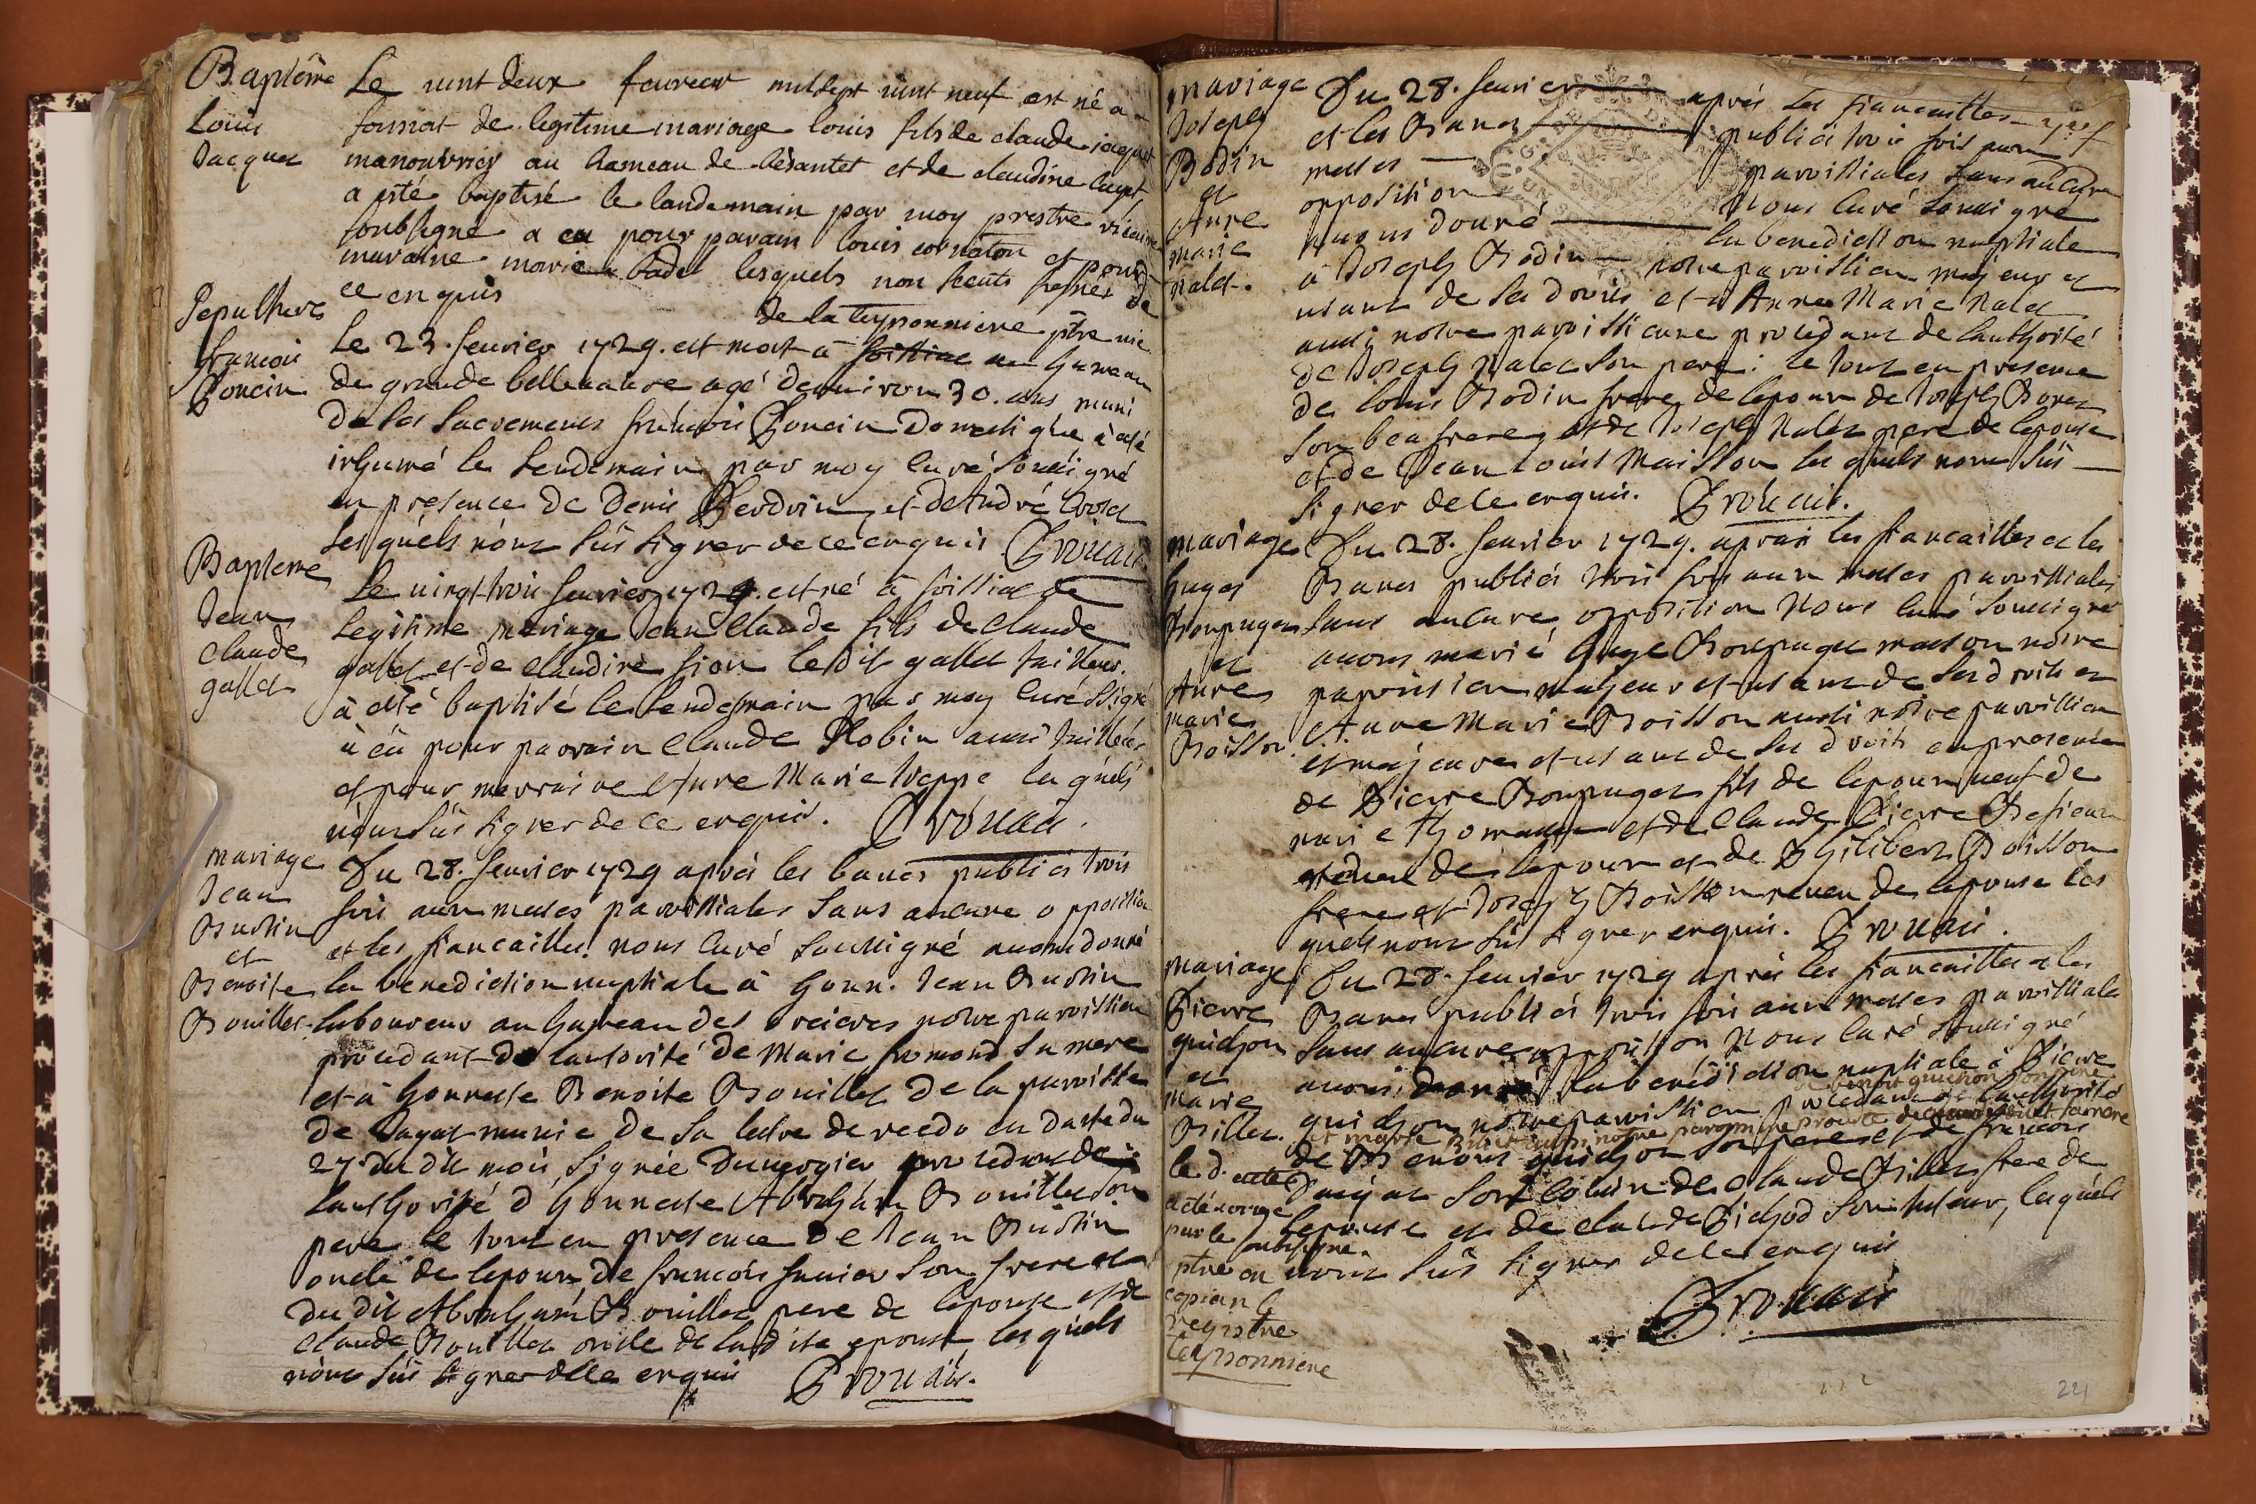 Baptême
Louis
Jacquet
Le vint deux fevrier mil sept vint neuf est né a
de legitime mariage louis fils de claude jaquet
manouvrier au hameau de et de claudine
a esté baptisé le landemain par moy prestre vicaire
soubsigné a eu pour parain louis et pour
maraine marie lesquels non sceuts signer de
ce enquis
de la teyssonniere ptre vic
Sepulture
francois
Poncin
Le 23. fevrier 1729. est mort à foissiac au hameau
de grande bellevavre agé denviron 30. ans muni
de ses sacrements francois Poncin domestique à esté
inhumé le lendemain par moy curé soussigné
en presence de Denis Perdrix et de André
lesquels n'ont sûs signer de ce enquis Brouais
Bapteme
Jean
Claude
gallet
Le vingt trois fevrier 1729. est né à foissiac de
legitime mariage Jean Claude fils de Claude
gallet et de Claudine sion ledit gallet tailleur.
à esté baptisé le lendemain par moy curé ssigné
à eû pour parrain Claude Robin aussi tailleur
et pour marraine Anne Marie treppe lesquels
n'ont sûs signer de ce enquis. Brouais.
mariage
Jean
Bustin
et
Benoite
Bouillet
Du 28. fevrier 1729 aprés les bancs publiés trois
fois aux messes parroissiales sans aucune opposition
et les fiancailles. nous curé soussigné avons donné
la benediction nuptiale à honn. Jean Bustin
laboureur au hameau des notre parroissien
procedant de lautorité de Marie fromond sa mere
et à honneste Benoite Bouillet de la parroisse
de munie de sa lettre de recedo en datte du
27. du dit mois signée procedant de
lauthorité d'honneste Abraham Bouillet son
pere le tout en presence de Jean Bustin
oncle de lepoux de francois fevrier son frere et
du dit Abraham Bouillet pere de lepouse et de
Claude Bouillet oncle de ladite epouse, lesquels
n'ont sûs signer de ce enquis Brouais.
mariage
Joseph
Bodin
et
Anne
marie
nalet.
Du 28. fevrier aprés les fiancailles
et les Banes publiés trois fois aux
messes parroissiales sans aucune
opposition Nous Curé soussigné
avons donné la benediction nuptiale
à Joseph Bodin notre parroissien majeur et
usant de ses droits et à Anne Marie Nalet
aussi notre parroissiene procedant de lauthorité
de Joseph Nalet son pere: le tout en presence
de louis Bodin frere de lepoux de Joseph
son beaufrere, et de Joseph Nalet pere de lepouse
et de Jean louis Maisson lesquels n'ont sûs
signer de ce enquis. Brouais.
mariage
huges
Bonpuget
et
Anne
marie
Boisson.
Du 28. fevrier 1729. aprés les fiancailles et les
Banes publiés trois fois aux messes parroissiales
sans aucune opposition Nous Curé soussigné
avons marié huge Bonpuget masson notre
parroissien majeur et usant de ses droits et
Anne Marie Boisson aussi notre parroissien
et majeure et usant de ses droits en presence
de Pierre Bonpuget fils de lepoux veuf de
marie et de Claude Pierre
de lepoux et de Philibert Boisson
frere et Joseph Boisson neveu de lepouse les
quels n'ont sûs signer enquis. Brouais.
mariage
Pierre
guichon
et
Marie
Billet.
Du 28. fevrier 1729 aprés les fiancailles et les
Banes publiés trois fois aux messes parroissiales
sans aucune opposition Nous Curé soussigné
avons donné la benediction nuptiale à Pierre
de benoit guichon son pere
guichon notre parroissien procedant de lauthorité
et marie Billet aussi notre parroissiene
de Benoit guichon son pere et de francois
son cousin de Claude Billet frere de
lepouse et de Claude Pichod son tuteur, lesquels
n'ont sûs signer de ce enquis
Brouais
le d. acte
a été
par le soubsigné
ptre en
copiant le
registre
teyssonniere
221